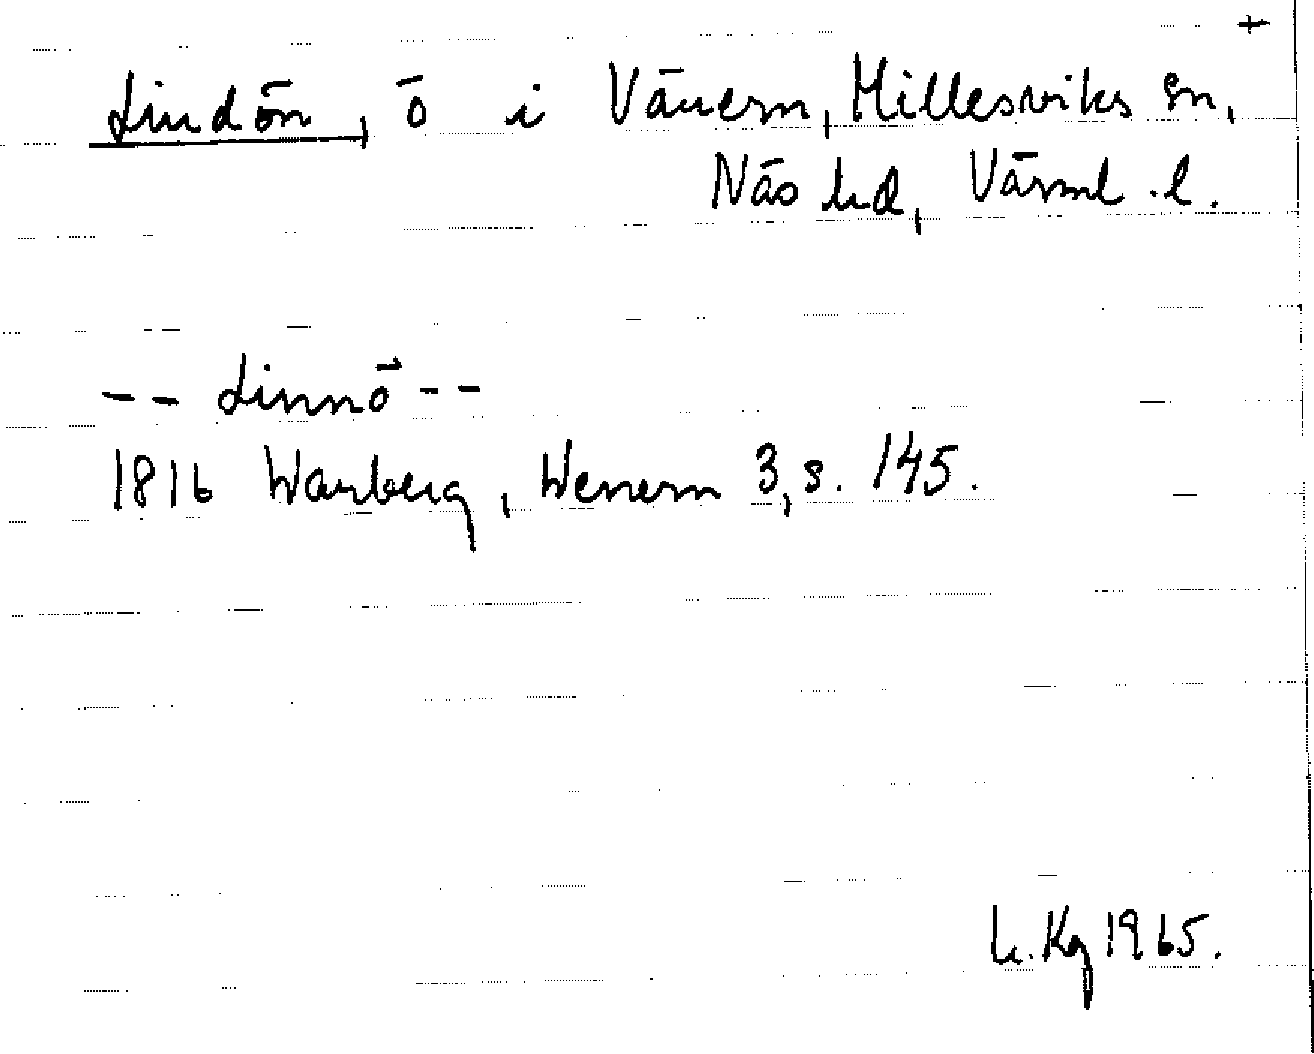 +
Lindön, ö i Vänern, Millesviks sn,
Näs hd, Värml. l.
-- Linnö --
1816 Warberg, Wenern 3, s. 145.
h. Kg 1965.